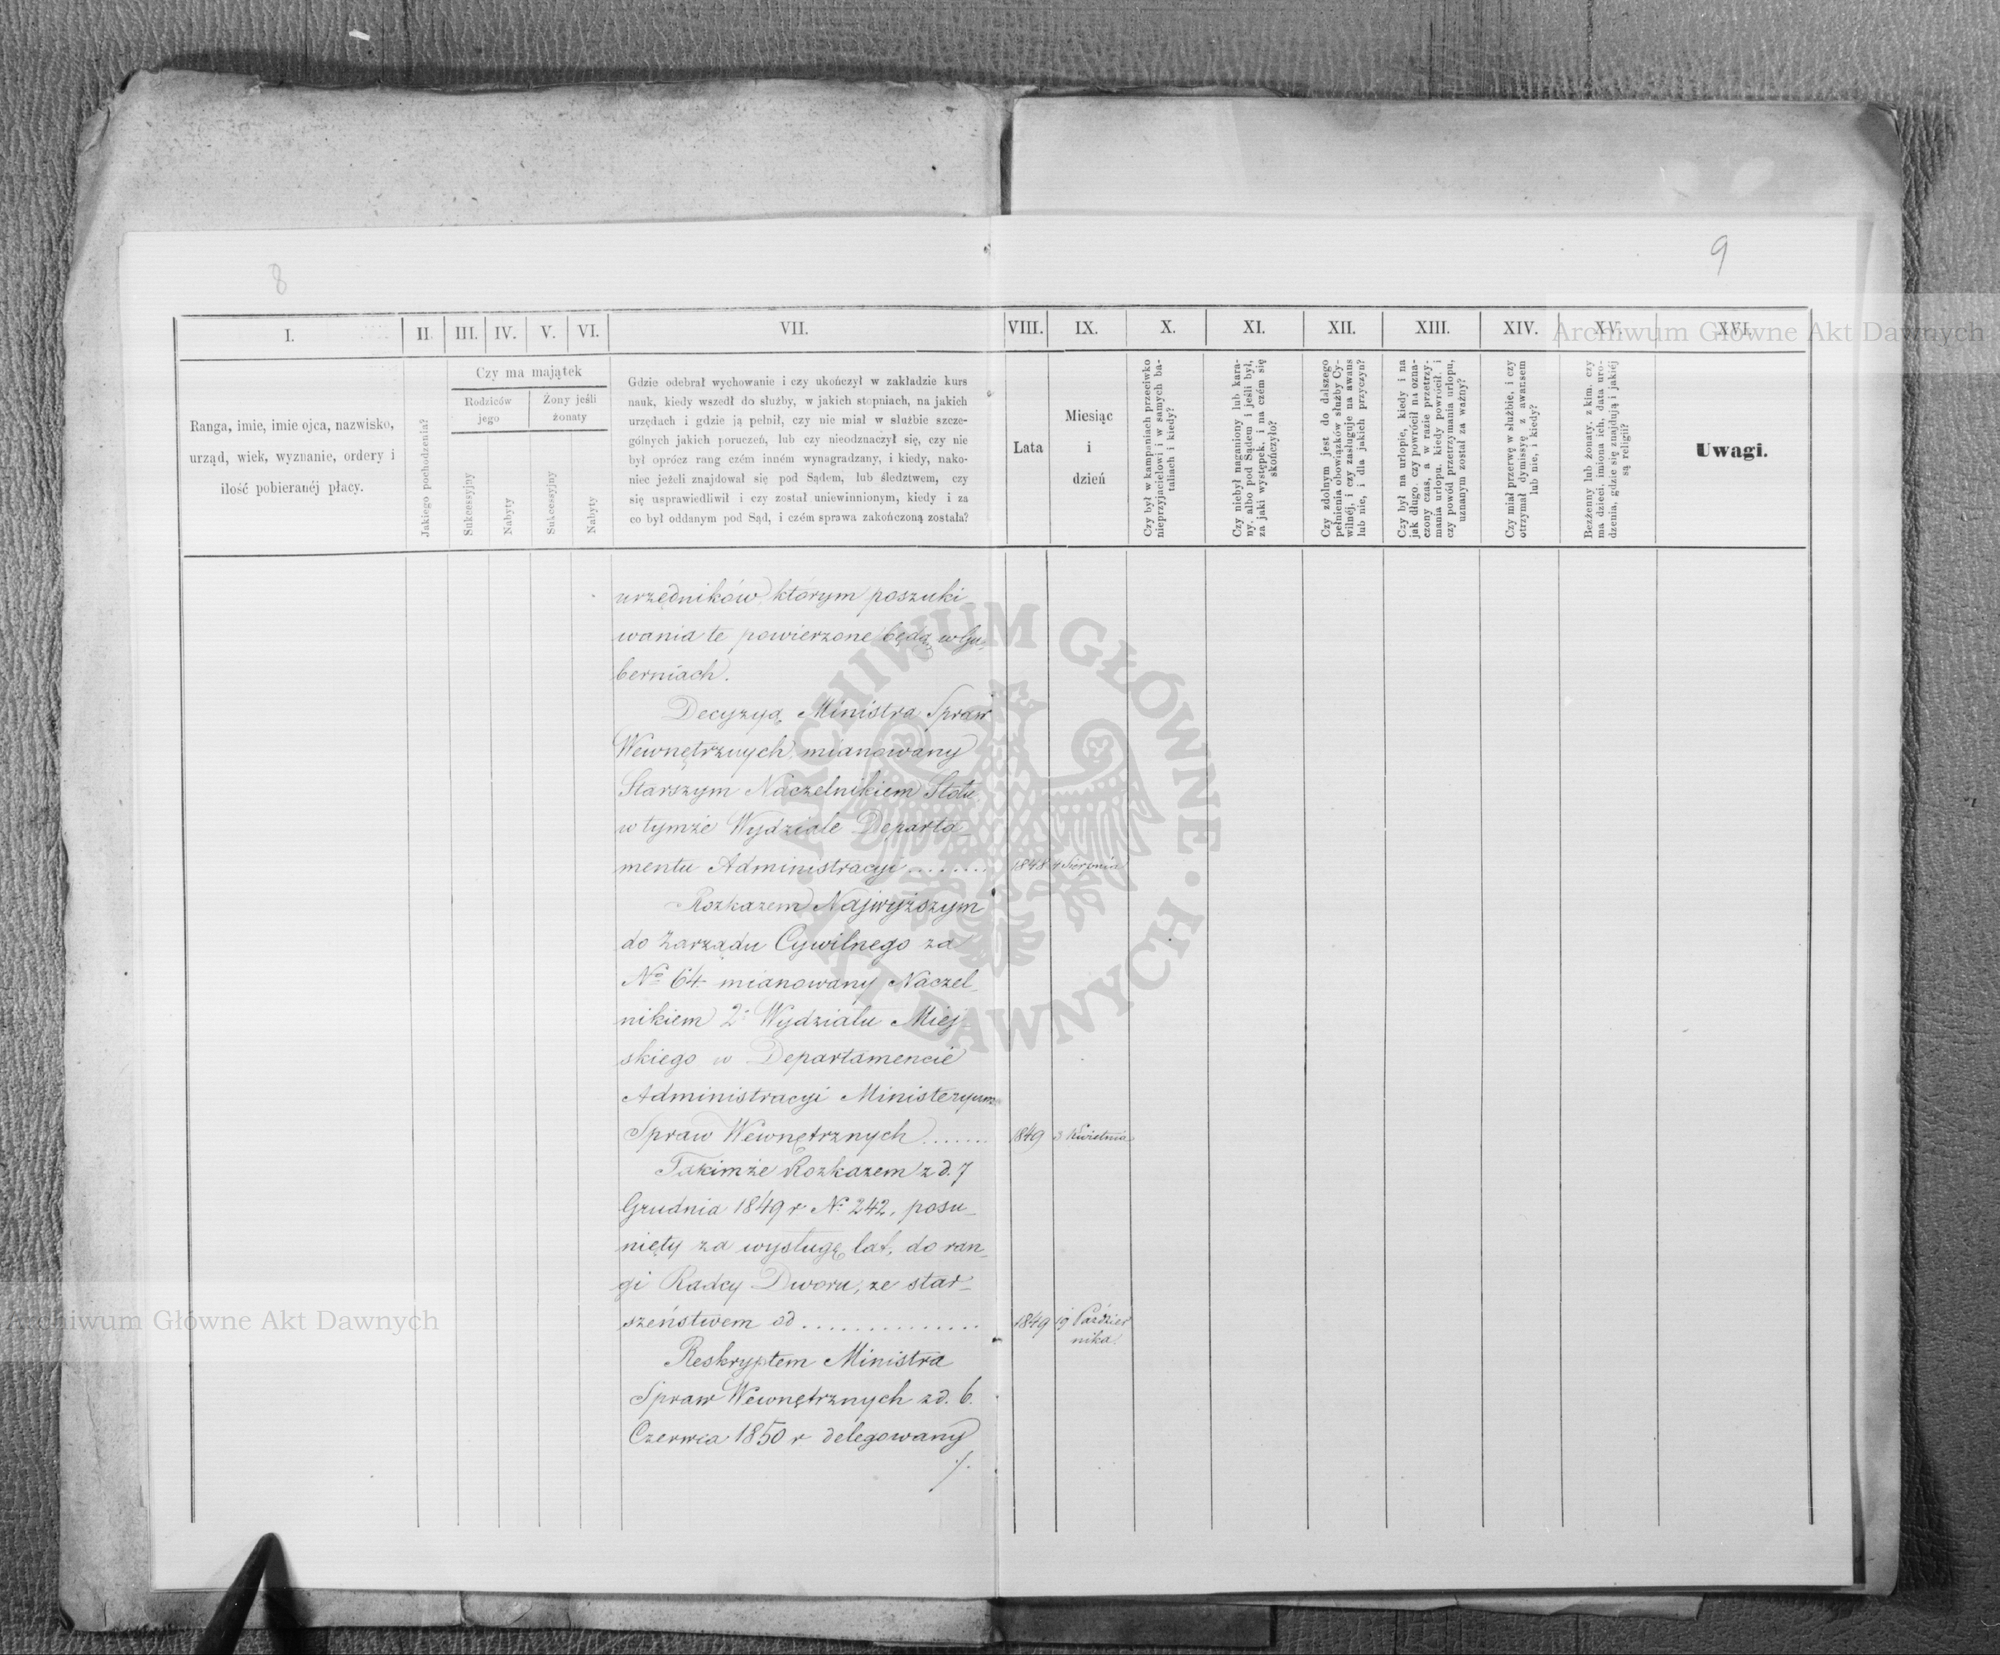 8
9
I.
II.
III.
IV.
V.
VI.
VII.
VIII.
IX.
X.
XI.
XII.
XIII.
XIV.
XV.
XVI.
Ranga, imię, imie ojca, nazwisko,
urząd, wiek, wyznanie, ordery i
ilość pobieranéj płacy.
Jakiego pochodzenia?
Czy ma majątek
Rodziców
jego
Żony jeśli
żonaty
Sukcessyjny
Nabyty
Sukcessyjny
Nabyty
Gdzie odebrał wychowanie i czy ukończył w zakładzie kurs
nauk, kiedy wszedł do służby, w jakich stopniach, na jakich
urzędach i gdzie ją pełnił, czy nie miał w służbie szcze-
gólnych jakich poruczeń, lub czy nieodznaczył się, czy nie
był oprócz rang czém inném wynagradzany, i kiedy, nako-
niec jeżeli znajdował się pod Sądem, lub śledztwem, czy
się usprawiedliwił i czy został uniewinnionym, kiedy i za
co był oddanym pod Sąd, i czém sprawa zakończoną została?
Lata
Miesiąc
i
dzień
Czy był w kampaniach przeciwko
nieprzyjacielowi i w samych ba-
taliach i kiedy?
Czy niebył naganiony lub kara-
ny, albo pod Sądem i jeśli był,
za jaki występek, i na czém się
skończyło?
Czy zdolnym jest do dalszego
pełnienia obowiązków służby Cy-
wilnéj, i czy zasługuje na awans
lub nie, i dla jakich przyczyn?
Czy był na urlopie, kiedy i na
jak długo, czy powrócił na ozna-
czony czas, a w razie przetrzy-
mania urlopu, kiedy powrócił, i
czy powód przetrzymania urlopu,
uznanym został za ważny?
Czy miał przerwę w służbie, i czy
otrzymał dymissyę z awansem
lub nie, i kiedy?
Bezżenny lub żonaty, z kim, czy
ma dzieci, imiona ich, data uro-
dzenia, gdzie się znajdują i jakiéj
są religii?
Uwagi.
urzędników, którym poszuki
wania te powierzone będą w Gu-
berniach.
Decyzyą Ministra Spraw
Wewnętrznych, mianowany
Starszym Naczelnikiem Stołu
w tymże Wydziale Departa-
mentu Administracyi ........ 1848 4 Sierpnia
Rozkazem Najwyższym
do Zarządu Cywilnego za
No 64 mianowany Naczel-
nikiem 2o Wydziału Miej
skiego w Departamencie
Administracyi Ministeryum
Spraw Wewnętrznych ....... 1849 3 Kwietnia
Takimże Rozkazem z d. 7
Grudnia 1849 r No 242, posu-
nięty za wysługę lat, do ran-
gi Radcy Dworu, ze star-
szeństwem od .............. 1849 19 Paździer
nika.
Reskryptem Ministra
Spraw Wewnętrznych z d. 6.
Czerwca 1850 r delegowany
./.
Archiwum Główne Akt Dawnych
Archiwum Główne Akt Dawnych
ARCHIWUM GŁÓWNE · AKT DAWNYCH ·